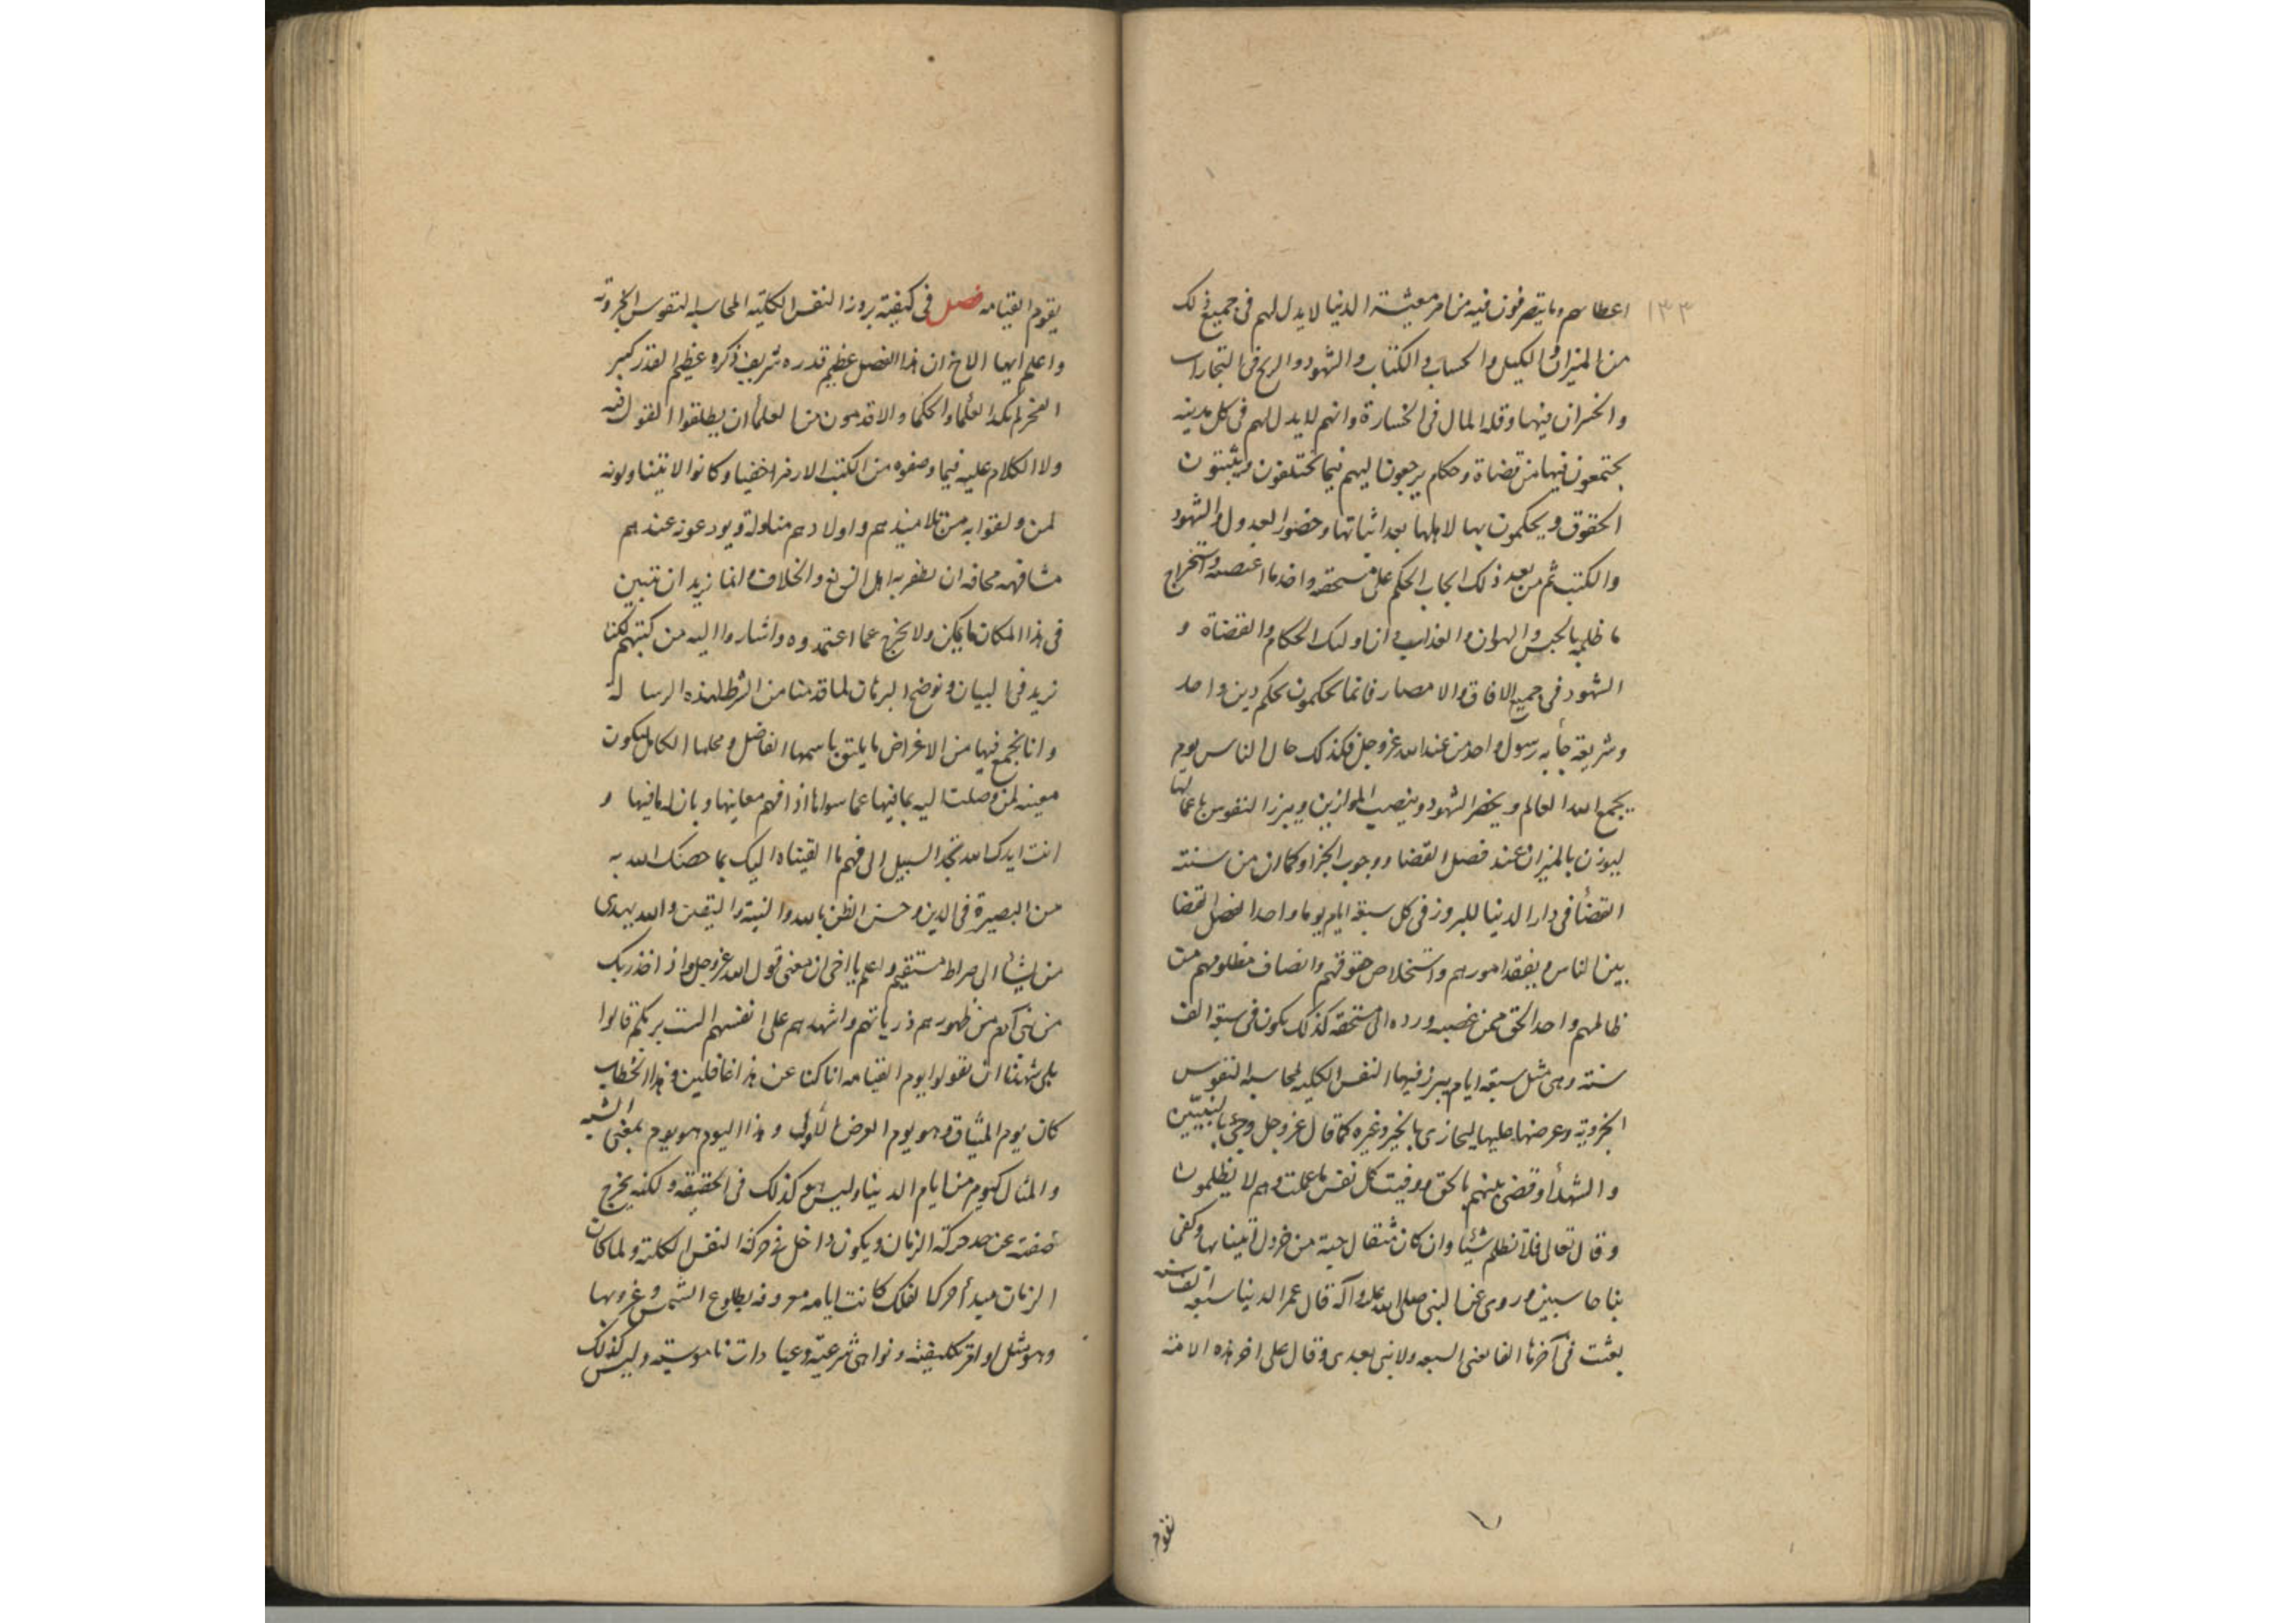 ١٣٣
اعطاهم وما يتصرفون فيه من امر معيشة الدنيا لابد لهم فى جميع ذلك
من الميزان والكيل والحساب والكتاب والشهود والربح فى التجارات
والخسران فيها وقلة المال فى الخسارة وانهم لابد لهم فى كل مدينه
يجتمعون فيها من قضاة وحكام يرجعون اليهم فيما يختلفون ويثبتون
الحقوق ويحكمون بها لاهلها بعد اثباتها وحضور العدول والشهود
والكتب ثم من بعد ذلك ايجاب الحكم على مستحقه واخذ ما اغتصبه واستخراج
ما ظلمه بالحبس والهوان والعذاب وان اولئك الحكام والقضاة و
الشهود فى جميع الافاق والامصار فانما يحكمون بحكم دين واحد
وشريعة جأ به رسول واحد من عند الله عز وجل فكذلك حال الناس يوم
يجمع الله العالم ويحضر الشهود وينصب الموازين ويبرز النفوس باعمالها
ليوزن بالميزان عند فصل القضا ووجوب الجزا وكما ان من سنته
القضأ فى دار الدنيا للبروز فى كل سبعة ايام يوما واحدا لفصل القضا
بين الناس وتفقد امورهم واستخلاص حقوقهم وانصاف مظلومهم من
ظالمهم واخذ الحق ممن غصبه ورده الى مستحقه كذلك يكون فى سبعة الف
سنته وهى مثل سبعة ايام يبرز فيها النفس الكليه لمحاسبة النفوس
الجزويه وعرضها عليها ليجازى بالخير وغيره كما قال عز وجل وجئ بالنبيّين
والشهدأ وقضى بينهم بالحق ووفيت كل نفس ما عملت وهم لا يظلمون
وقال تعالى فلا تظلم شيئا وان كان مثقال حبة من خردل اتينا بها وكفى
بنا حاسبين وروى عن النبى صلى الله عليه وآله قال عمر الدنيا سبعة آلف سنه
بعثت فى آخرها الفا يعنى السبعه ولا نبى بعدى وقال على اخر هذه الامة
تقوم
يقوم القيامه فصل فى كيفية بروز النفس الكلية المحاسبه النفوس الجزويه
واعلم ايها الاخ ان هذا الفصل عظيم قدره شريف ذكره عظيم القدر كبير
الفخر لم يكد العلمأ والحكما والاقدمون من العلمأ ان يطلقوا القول فيه
ولا الكلام عليه فيما وصفوه من الكتب الا رمزا خفيا وكانوا لا يتناولونه
لمن وثقوا به من تلاميذهم واولادهم مناولة ويودعونه عندهم
مشافهه مخافه ان يظفر به اهل الزيغ والخلاف وانما نريد ان نبين
فى هذا المكان ما يمكن ولا نخرج عما اعتمدوه واشاروا اليه من كتبهم لكنا
نزيد فى البيان ونوضح البرهان لما قدمنا من الشرط لهذه الرسالة
وانا نجمع فيها من الاغراض ما يليق باسمها الفاضل ومحلها الكامل ليكون
مغنيه لمن وصلت اليه بما فيها عما سواها اذا فهم معانيها وبان له ما فيها و
انت ايدك الله تجد السبيل الى فهم ما القيناه اليك بما خصك الله به
من البصيرة فى الدين وحسن الظن بالله والنية واليقين والله يهدى
من يشأ الى صراط مستقيم واعلم يا اخى ان معنى قول الله عز وجل واذ اخذ ربك
من بنى آدم من ظهورهم ذرياتهم واشهدهم على انفسهم الست بربكم قالوا
بلى شهدنا ان تقولوا يوم القيامه انا كنا عن هذا غافلين وهذا الخطاب
كان يوم الميثاق وهو يوم العرض الأولى وهذا اليوم هو يوم بمعنى الشبه
والمثال كيوم من ايام الدنيا وليس هو كذلك فى الحقيقه ولكنه يخرج
صفته عن حد حركة الزمان ويكون داخل فى حركة النفس الكلية ولما كان
الزمان مبدأ حركات الفلك كانت ايامه معروفه بطلوع الشمس وغروبها
وهو مثل اوامر تكليفيه ونواهى شرعيّه وعبادات ناموسيه وليس كذلك